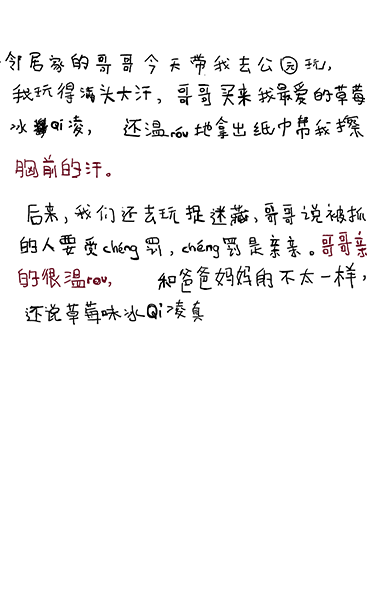 邻居家的哥哥今天带我去公园玩,
我玩得满头大汗,哥哥买来我最爱的草莓
冰qi凌,还温róu地拿出纸巾帮我擦
胸前的汗。
后来,我们还去玩捉迷藏,哥哥说被抓
的人要受chéng罚,chéng罚是亲亲。哥哥亲
的很温rou,和爸爸妈妈的不太一样,
还说草莓味冰Qi凌真